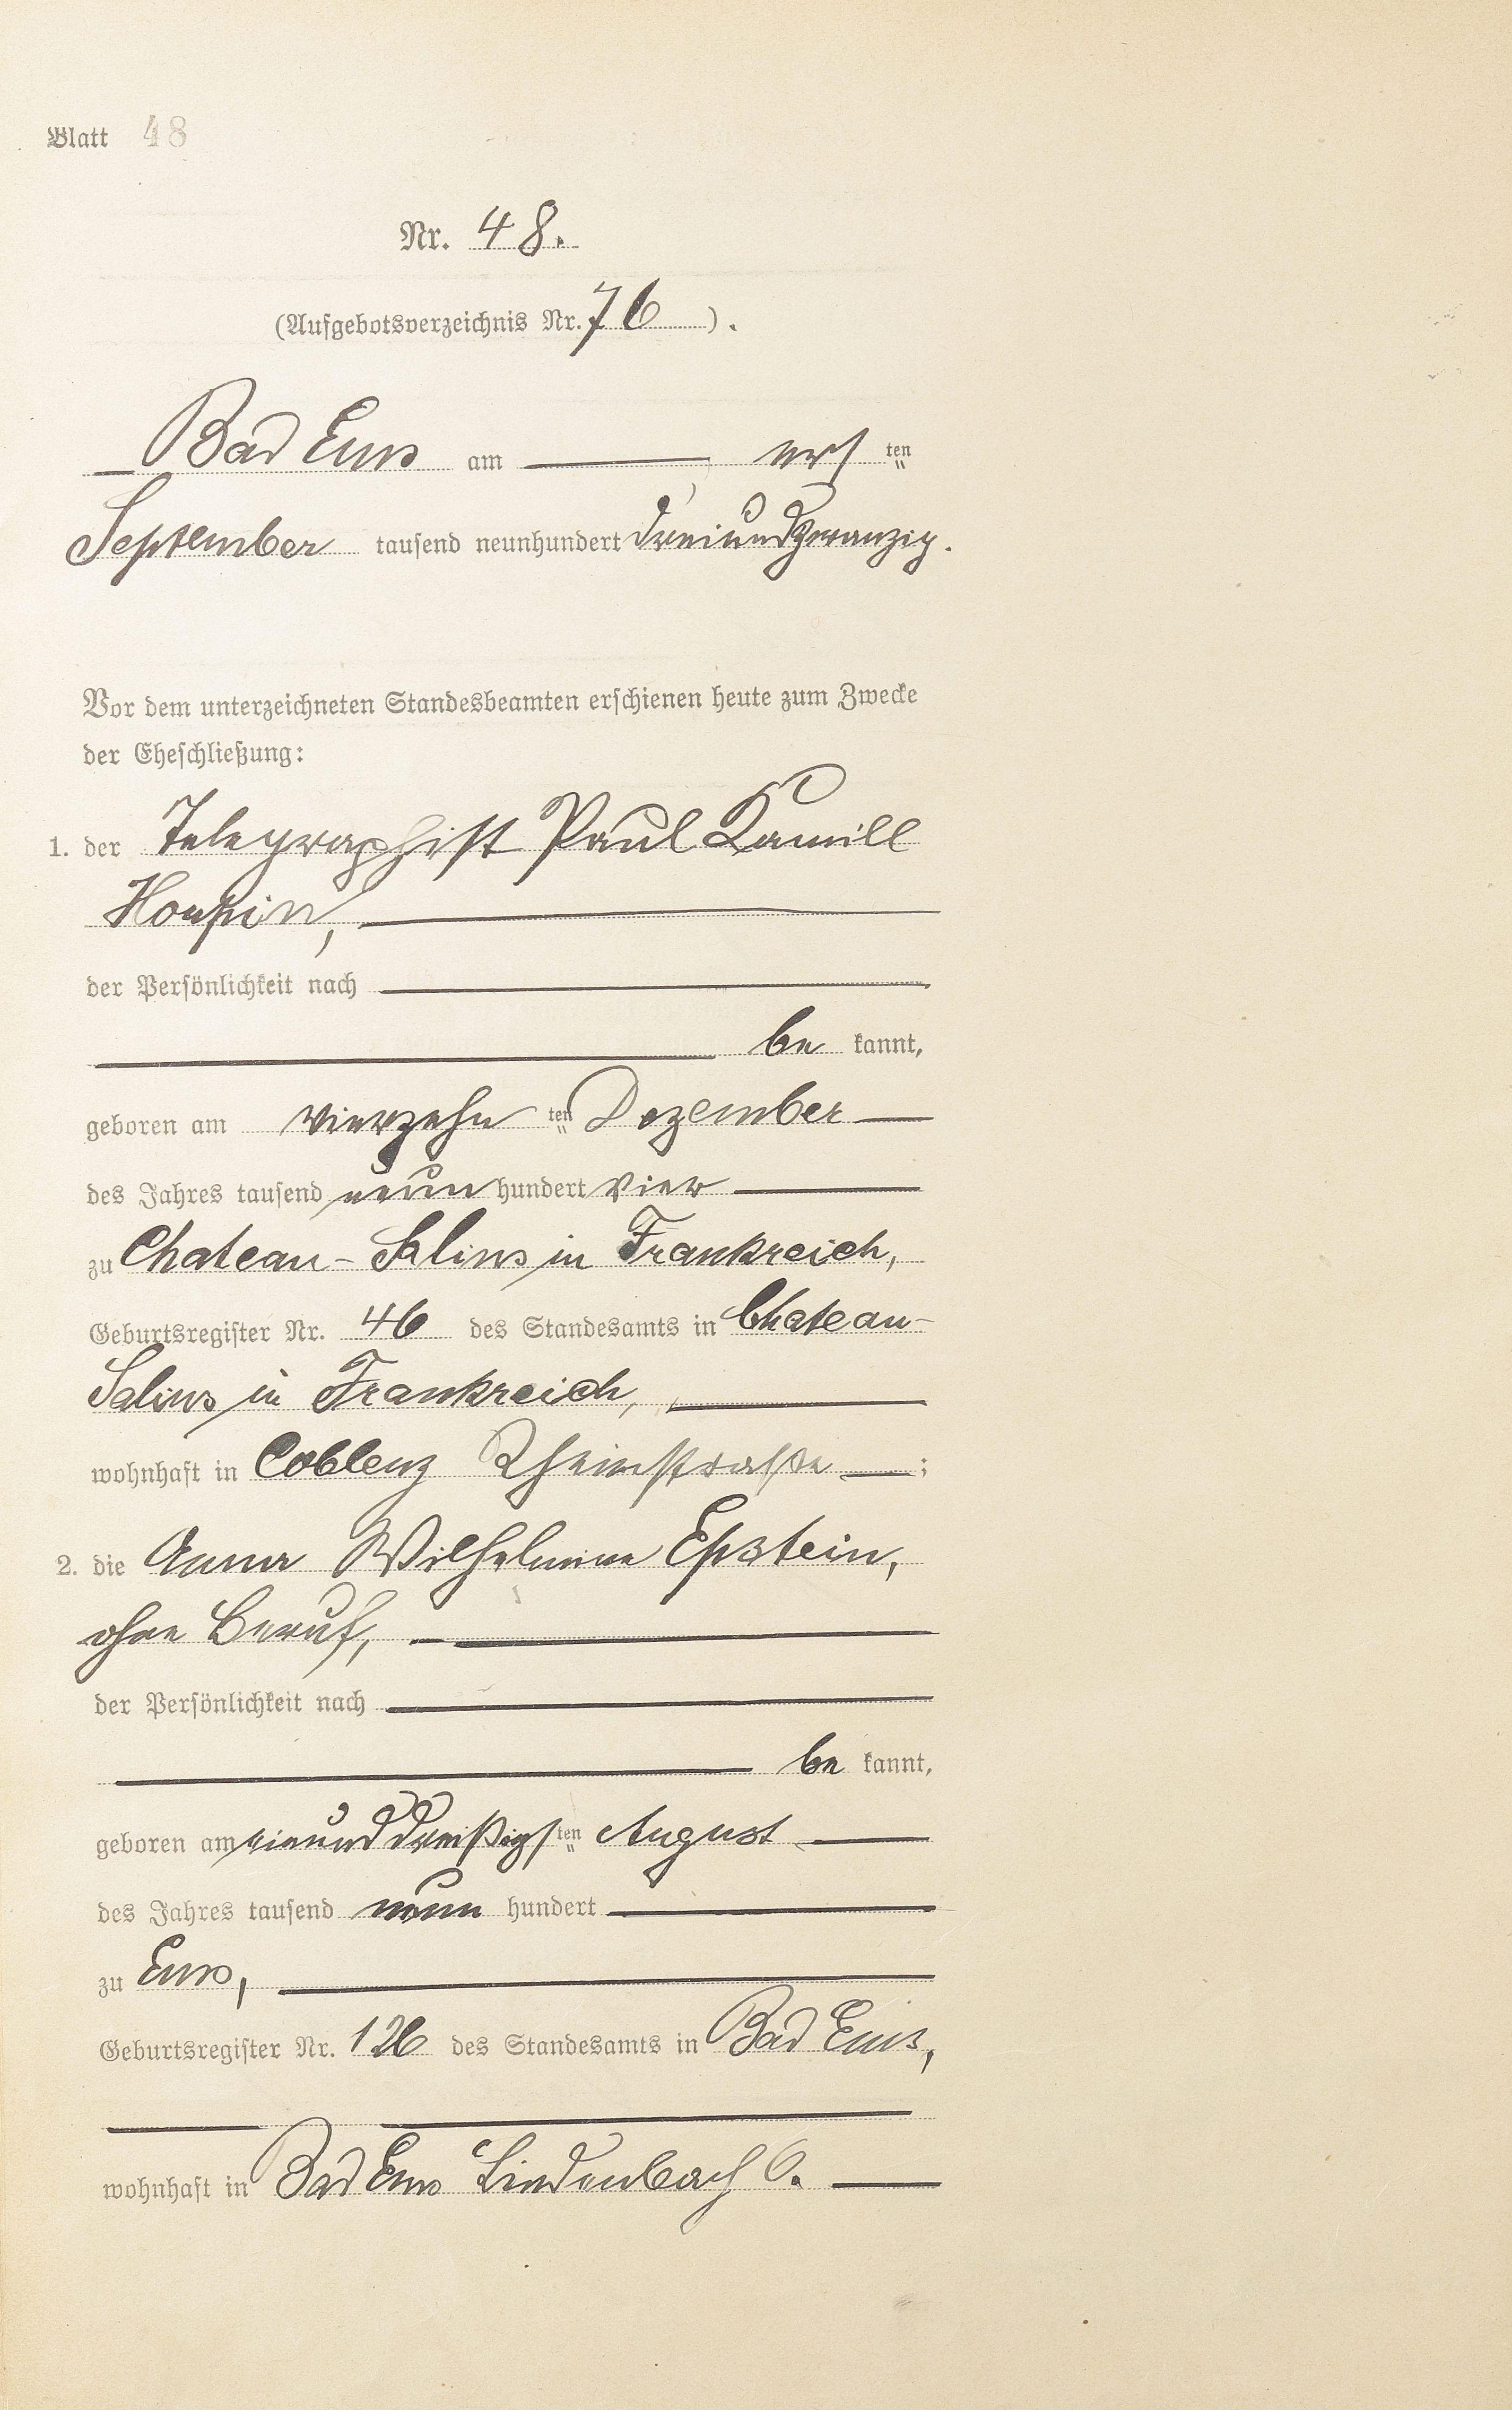 Blatt 48
Nr. 48.
(Aufgebotsverzeichnis Nr. 76).
Bad Ems am ersten
September tausend neunhundert dreiundzwanzig.
Vor dem unterzeichneten Standesbeamten erschienen heute zum Zwecke
der Eheschließung:
1. der Telegraphist Paul Kamill
der Persönlichkeit nach
be kannt,
geboren am vierzehn ten Dezember
des Jahres tausend neun hundert vier
zu Chateau-Salins in Frankreich,
Geburtsregister Nr. 46 des Standesamts in Chateau-
Salins in Frankreich,
wohnhaft in Coblenz Rheinstraße ;
2. die Anna Wilhelmine Epstein,
ohne Beruf,
der Persönlichkeit nach
be kannt,
geboren am einunddreißigsten August
des Jahres tausend neun hundert
zu Ems,
Geburtsregister Nr. 126 des Standesamts in Bad Ems,
wohnhaft in Bad Ems Lindenbach 6.